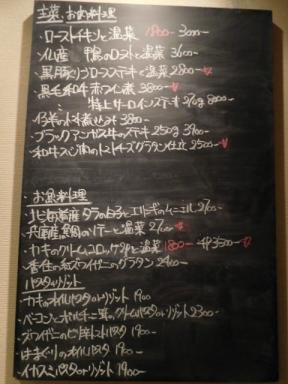 主菜 お肉料理
・ローストチキンと温菜 1800- 3000-
・仏産 鴨のロストと温菜 3600-
・黒胡 2800-
・黒毛和牛ホワイン煮 3800-
・ 特上サーロインステーキ 270g 8000-
・仔羊の煮込み 3800-
・ブラックアンガス牛のステーキ 250g 3900-
・和牛スジ肉のトマトチーズグラタン仕立 2500-
・お魚料理
・北海道産タラの白子とエリンギのムニエル 2700-
・兵庫産鯛のバターと温菜 2700-
・カキのクリームコロッケ2ケと温菜 1800- 4ケ3500-
・香住の紅ズワイガニのグラタン 2400-
パスタ・リゾット
・カキのオイルパスタorリゾット 1900
・ベーコンとポルチーニ茸のクリームパスタorリゾット 2300-
・ズワイガニのピリ辛トマトパスタ 1900-
・はまぐりのオイルパスタ 1900-
・イカスミパスタorリゾット 1900-